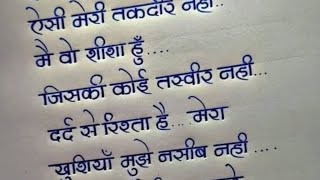 ऐसी मेरी तकदीर नही...
मै वो शीशा हुँ....
जिसकी कोई तस्वीर नही...
दर्द से रिश्ता है... मेरा
खुशियाँ मुझे नसीब नही ....